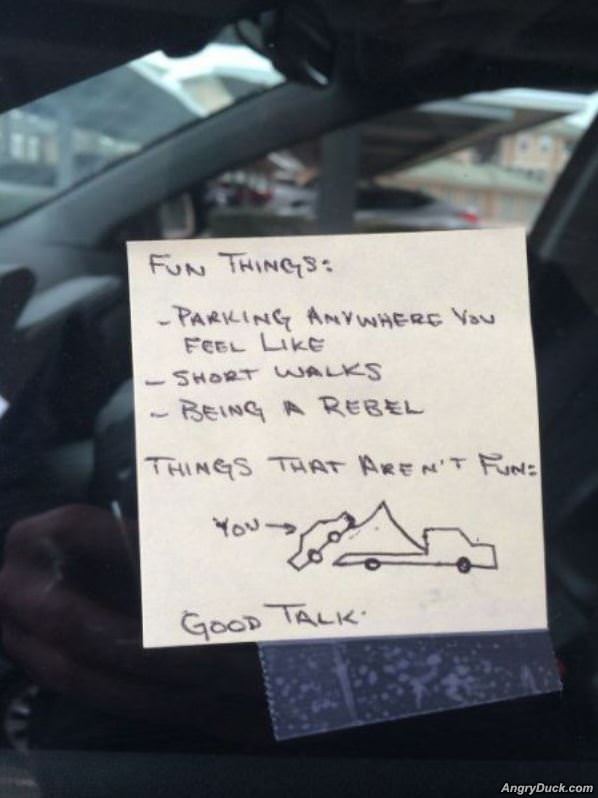 FUN THINGS:
- PARKING ANYWHERE YOU
FEEL LIKE
- SHORT WALKS
- BEING A REBEL
THINGS THAT AREN'T FUN:
YOU →
GOOD TALK.
AngryDuck.com